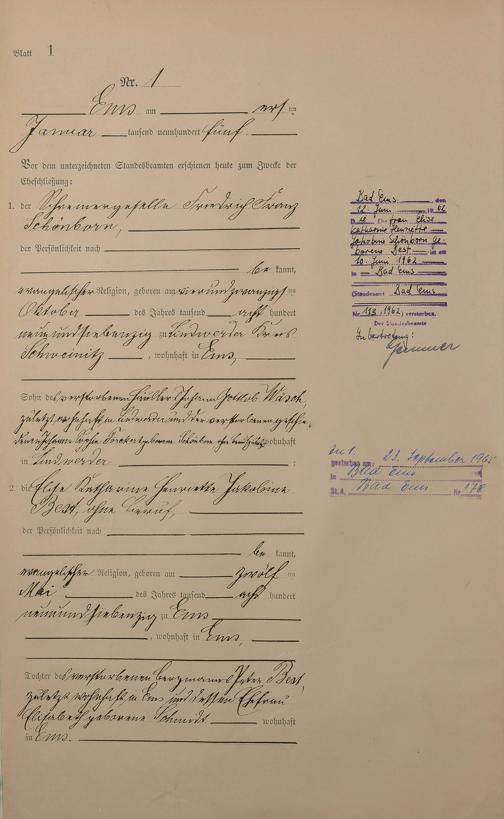 Blatt 1
Nr. 1
Ems am ersten
Januar tausend neunhundert fünf.
Vor dem unterzeichneten Standesbeamten erschienen heute zum Zwecke der
Eheschließung:
1. der Schreinergeselle Friedrich Franz
Schönborn,
der Persönlichkeit nach
be kannt,
evangelischer Religion, geboren am vierundzwanzigsten
Oktober des Jahres tausend acht hundert
neunundsiebenzig zu Lindwerder Kreis
Schweinitz, wohnhaft in Ems,
Sohn des verstorbenen Häusler Johann Gottlob
zuletzt wohnhaft in Lindwerder und der verstorbenen
Johanne geborenen Schönborn wohnhaft
in Lindwerder
2. die Elise Katharine Henriette Jakobine
Best, ohne Beruf,
der Persönlichkeit nach
be kannt,
evangelischer Religion, geboren am zwölften
Mai des Jahres tausend acht hundert
neunundsiebenzig zu Ems
, wohnhaft in Ems,
Tochter des verstorbenen Bergmannes Peter Best,
zuletzt wohnhaft in Ems und dessen Ehefrau
Elisabeth geborene Schmidt wohnhaft
in Ems.
Bad Ems, den
12. Juni 1962
Die Frau Elise
Katharine Henriette
Jakobine Schönborn ge-
borene Best ist am
10. Juni 1962
in Bad Ems
(Standesamt Bad Ems
Nr. 113/1962) verstorben.
Der Standesbeamte
In Vertretung:
Zu 1.
gestorben am 23. September 1965
in Bad Ems
St.A. Bad Ems Nr. 178